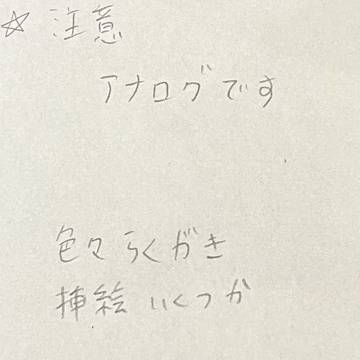 ☆ 注意
アナログです
色々らくがき
挿絵いくつか